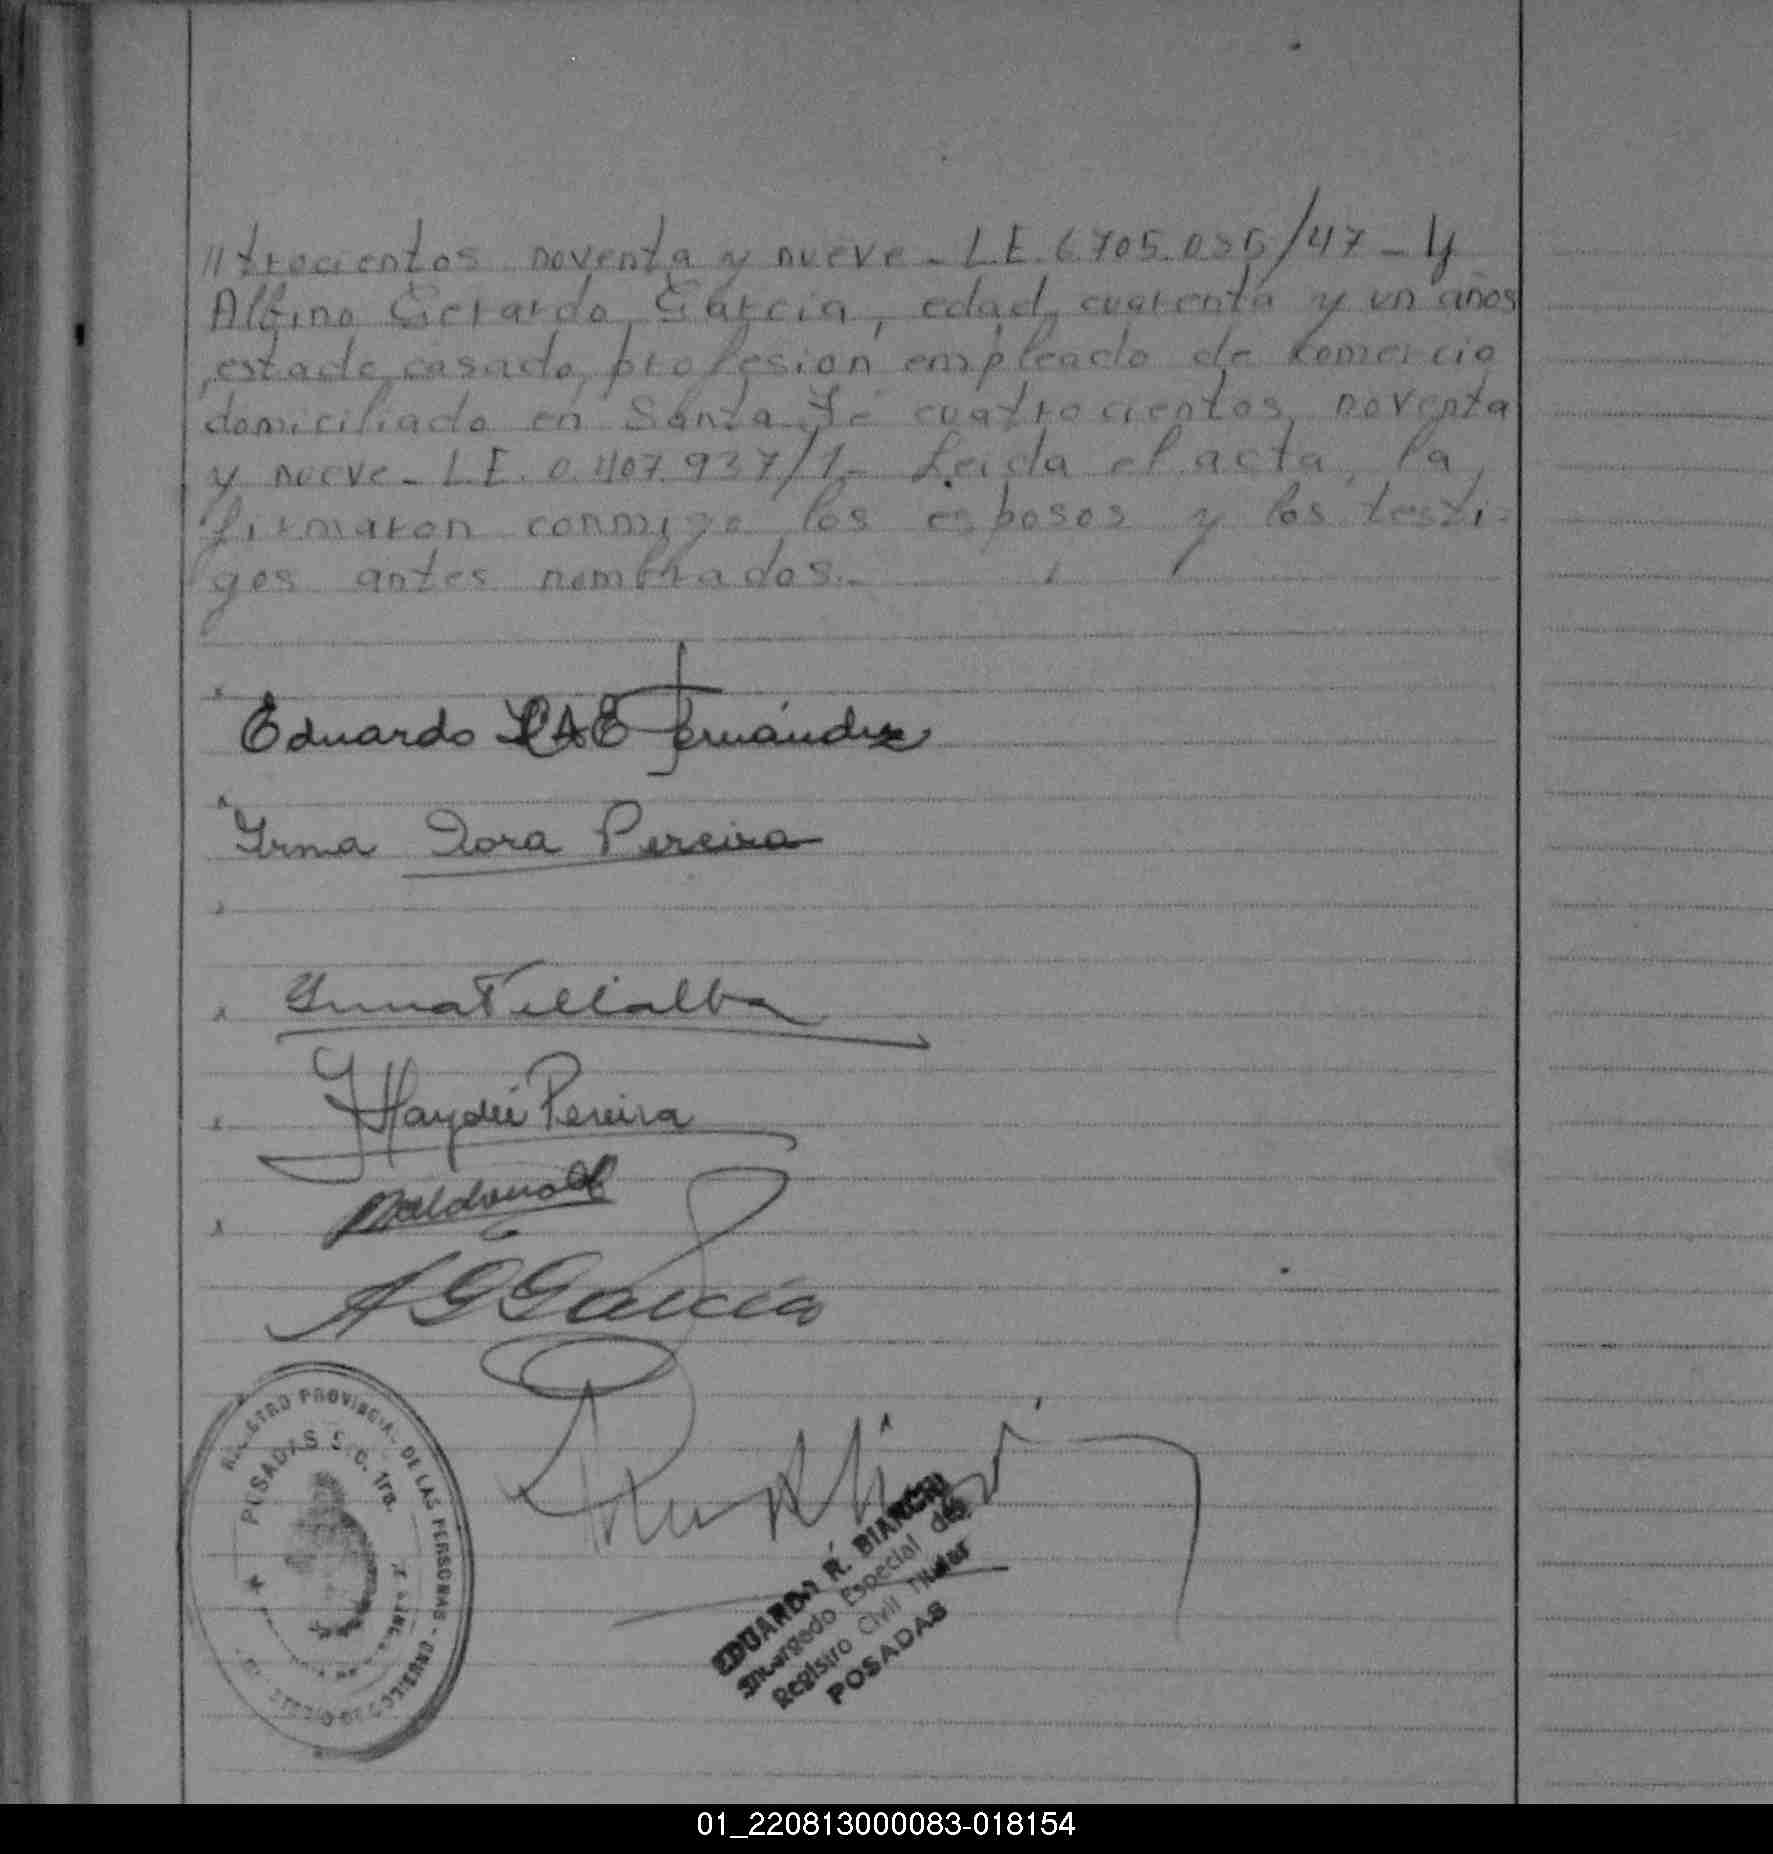 //trocientos noventa y nueve - L.E. 6.705.035/47 - Y
Albino Gerardo García, edad cuarenta y un años
, estado casado, profesión empleado de comercio
domiciliado en Santa Fé cuatrocientos noventa
y nueve - L.E. 0.407.937/1 - Leida el acta, la
firmaron conmigo los esposos y los testi-
gos antes nombrados.-
Eduardo Fernández
Yrma Dora Pereira
Villalba
Haydée Pereira
Maldonado
A G García
REGISTRO PROVINCIAL DE LAS PERSONAS
POSADAS S.C. 1ra.
EDUARDO R. BIANCHI
Encargado Especial del
Registro Civil Titular
POSADAS
01_220813000083-018154